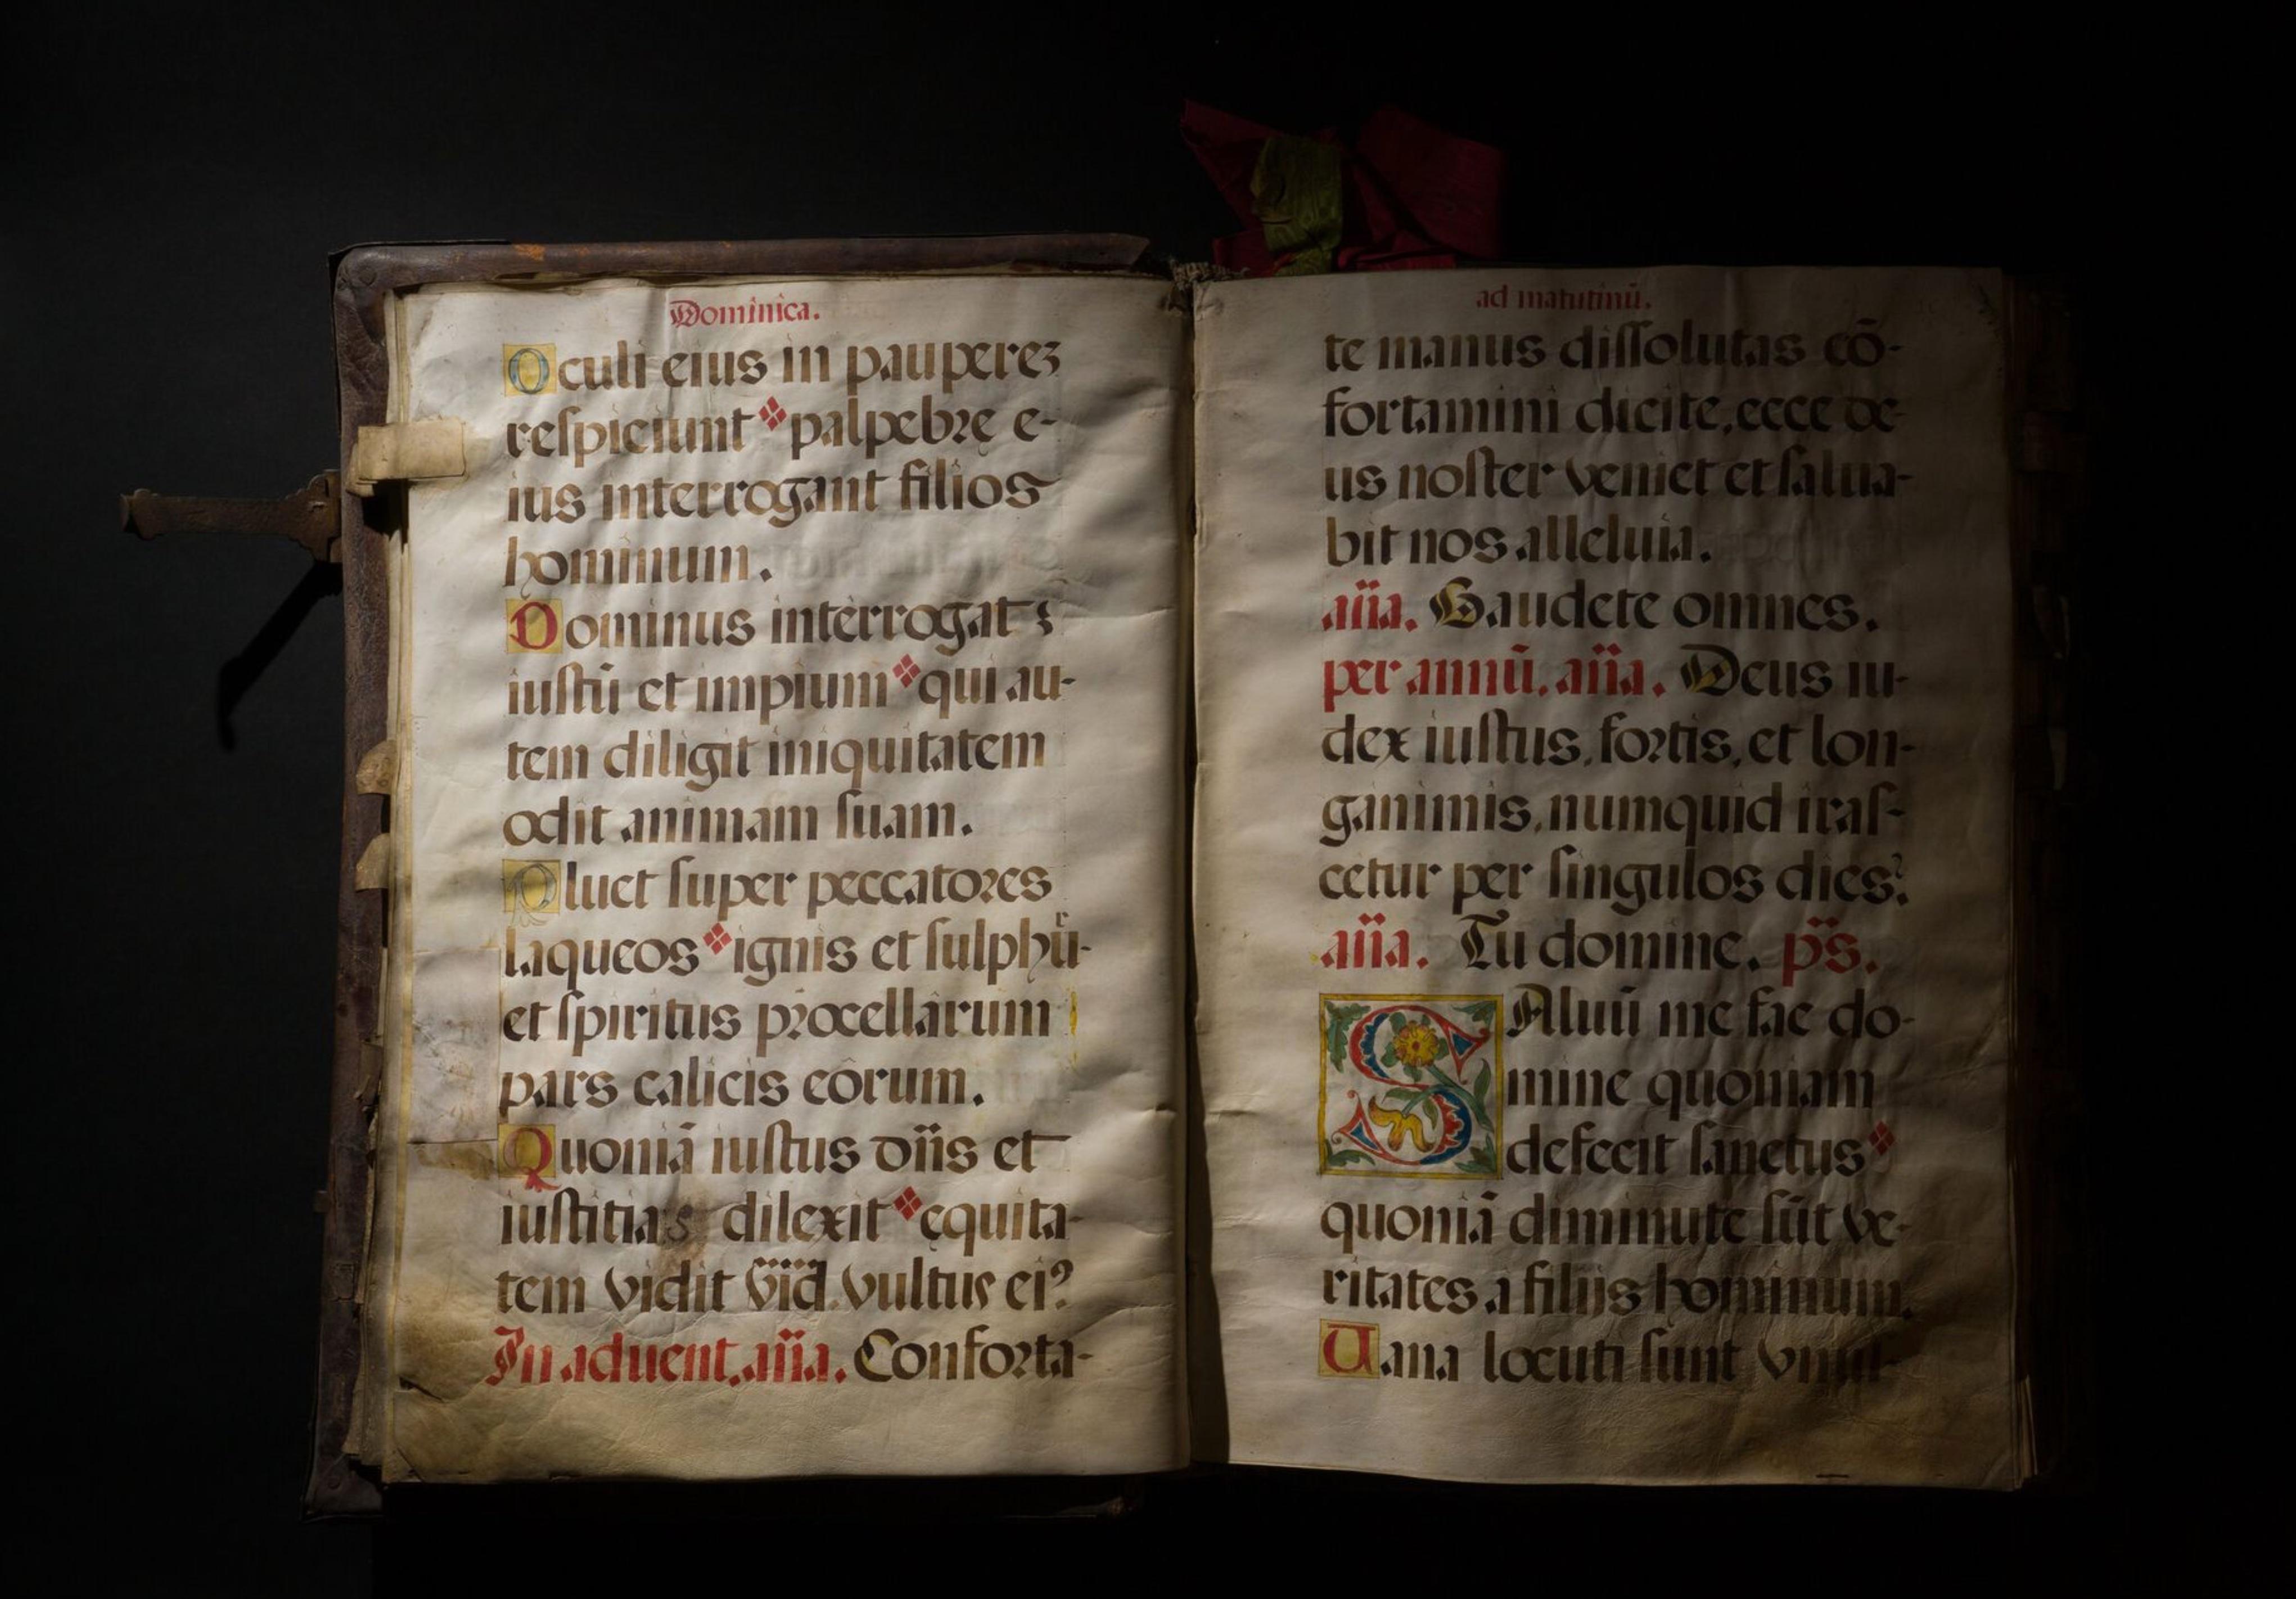 Dominica.
Oculi eius in pauperez
respiciunt palpebre e-
ius interrogant filios
hominum.
Dominus interrogat
iustū et impium qui au-
tem diligit iniquitatem
odit animam suam.
Pluet super peccatores
laqueos ignis et sulphũ-
et spiritus procellarum
pars calicis côrum.
Quoniā iustus dñs et
iustitias dilexit ęquita-
tem vidit vultus ei⁹
In aduent. aña. Conforta-
ad matutinū.
te manus dissolutas cō-
fortamini dicite, ecce de-
us noster veniet et salua-
bit nos alleluia.
aña. Gaudete omnes.
per annū. aña. Deus iu-
dex iustus, fortis, et lon-
ganimis, numquid iras-
cetur per singulos dies?
aña. Tu domine. ps.
SAluū me fac do-
mine quoniam
defecit sanctus
quoniā diminute sūt ve-
ritates a filijs hominum.
Uana locuti sunt vnus-